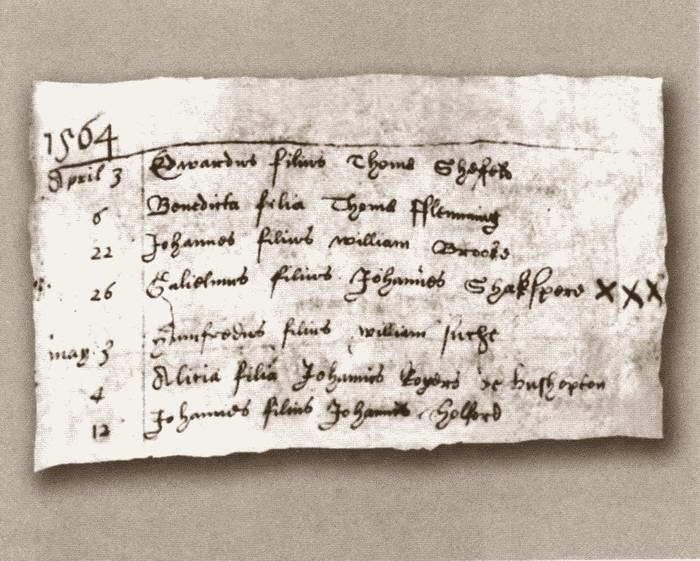 1564
April 3 Edwardus filius Thome Sheffeld
6 Benedicta filia Thome Fflemming
22 Johannes filius William Brooke
26 Gulielmus filius Johannes Shakspere XXX
may 3 filius William
4 Alicia filia Johannis Rogers de
12 Johannes filius Johannis Holford